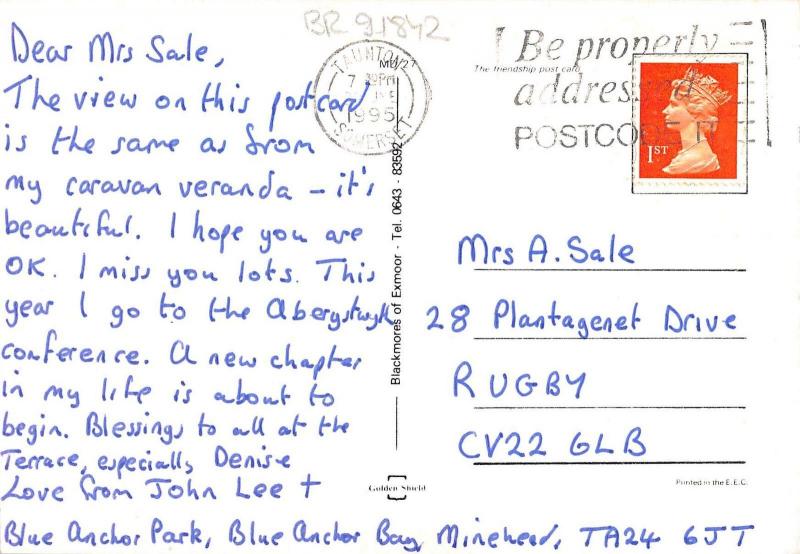 BR 91842
Dear Mrs Sale,
The view on this postcard
is the same as from
my caravan veranda - it's
beautiful. I hope you are
OK. I miss you lots. This
year I go to the Aberystwyth
conference. A new chapter
in my life is about to
begin. Blessings to all at the
Terrace, especially Denise
Love from John Lee +
Blue Anchor Park, Blue Anchor Bay, Minehead, TA24 6JT
TAUNTON
7
1995
SOMERSET
The friendship post card
Be properly
addressed
POSTCODE IT
1ST
Blackmores of Exmoor - Tel. 0643 - 83592
Mrs A. Sale
28 Plantagenet Drive
RUGBY
CV22 6LB
Golden Shield
Printed in the E.E.C.